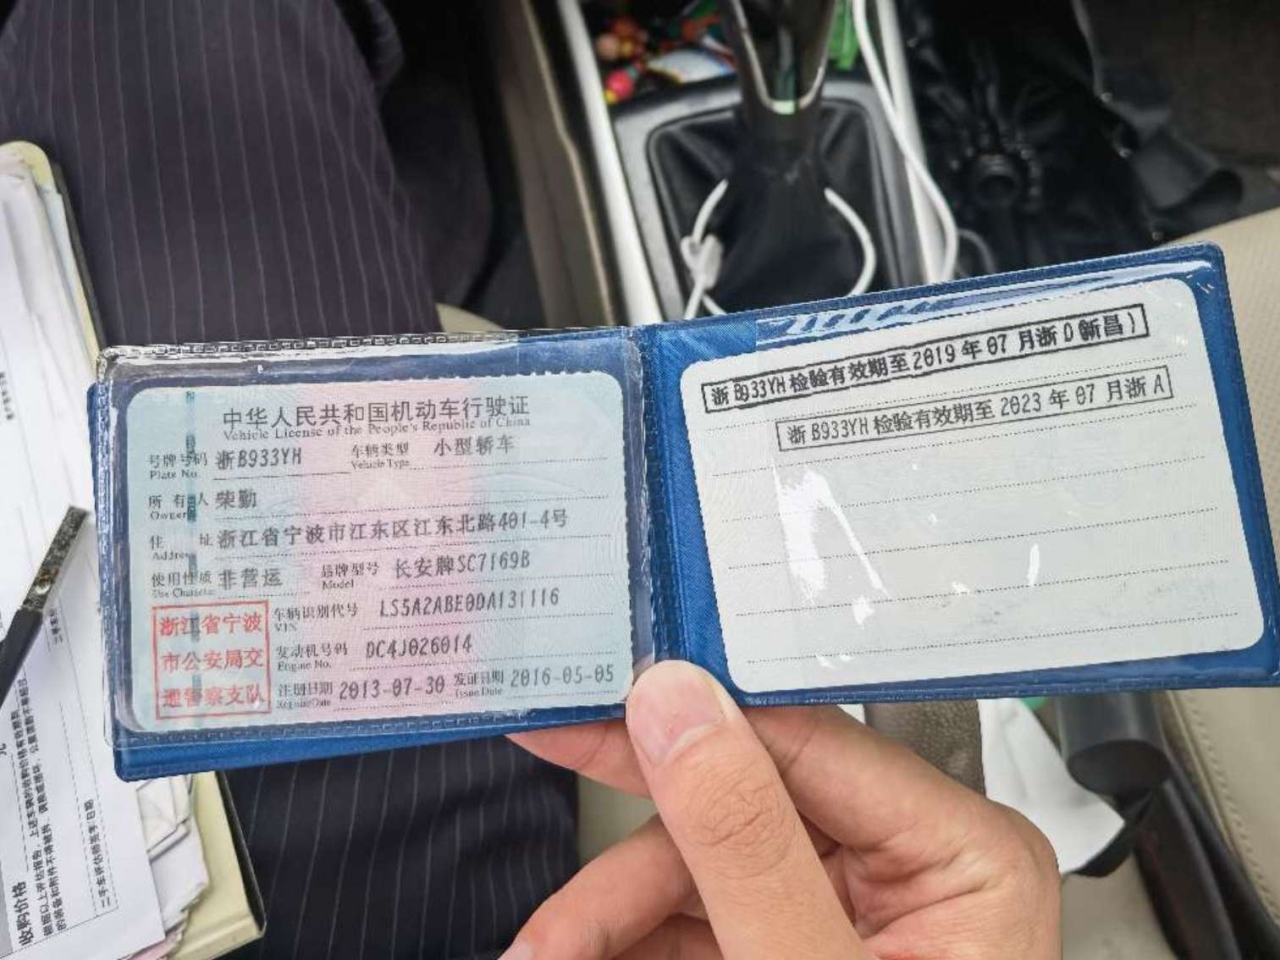 中华人民共和国机动车行驶证
Vehicle License of the People's Republic of China
号牌号码 浙B933YH 车辆类型 小型轿车
Plate No. Vehicle Type
所有人 柴勤
Owner
住址 浙江省宁波市江东区江东北路401-4号
Address
使用性质 非营运 品牌型号 长安牌SC7169B
Use Character Model
车辆识别代号 LS5A2ABE0DA131116
VIN
发动机号码 DC4J026014
Engine No.
注册日期 2013-07-30 发证日期 2016-05-05
Register Date Issue Date
浙江省宁波
市公安局交
通警察支队
浙B933YH检验有效期至2019年07月浙D(新昌)
浙B933YH检验有效期至2023年07月浙A
收购价格
二手车评估师签字日期